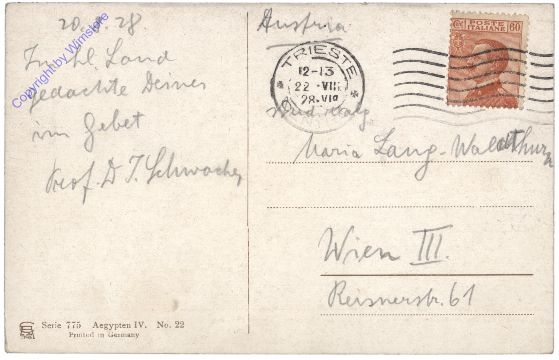 20. 8. 28
Im hl. Land
gedachte Deiner
im Gebet
Prof. D
Copyright by Wimstore
Serie 775 Aegypten IV. No. 22
Printed in Germany
Austria
TRIESTE
12-13
22 · VIII
28 · VI
POSTE
ITALIANE
60
Maria Lang-Waldthurn
Wien III.
Reisnerstr. 61